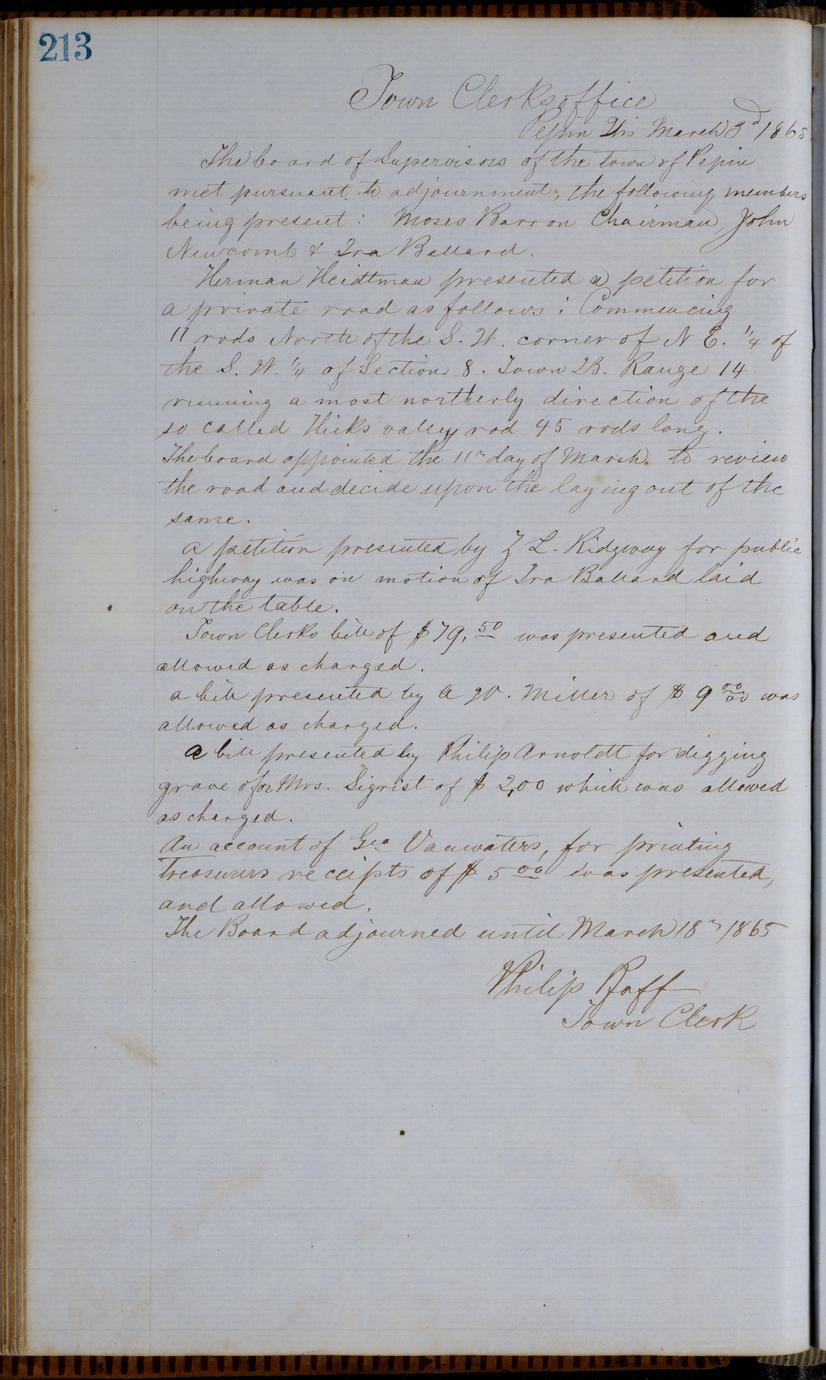 213
Town Clerks office
Pepin Wis March 3d 1865
The board of Supervisors of the town of Pepin
met pursuant to adjournment, the following members
being present: Moses Barron Chairman, John
Newcomb & Ira Ballard.
Herman Heidtman presented a petition for
a private road as follows: Commencing
11 rods North of the S. W. corner of N E. 1/4 of
the S. W. 1/4 of Section 8. Town 23. Range 14.
running a most northerly direction of the
so called Hicks valley rod 45 rods long.
The board appointed the 11th day of March, to review
the road and decide upon the laying out of the
same.
a petition presented by L. Ridgway for public
highway was on motion of Ira Ballard laid
on the table.
Town Clerks bill of $79.50 was presented and
allowed as charged.
a bill presented by A W. Miller of $9 00/00 was
allowed as charged.
a bill presented by Philip Arnoldt for digging
grave for Mrs. Sigrist of $2,00 which was allowed
as charged.
An account of Geo Vanwaters, for printing
Treasurers receipts of $5 00 was presented,
and allowed.
The Board adjourned until March 18th 1865
Philip Pfaff
Town Clerk